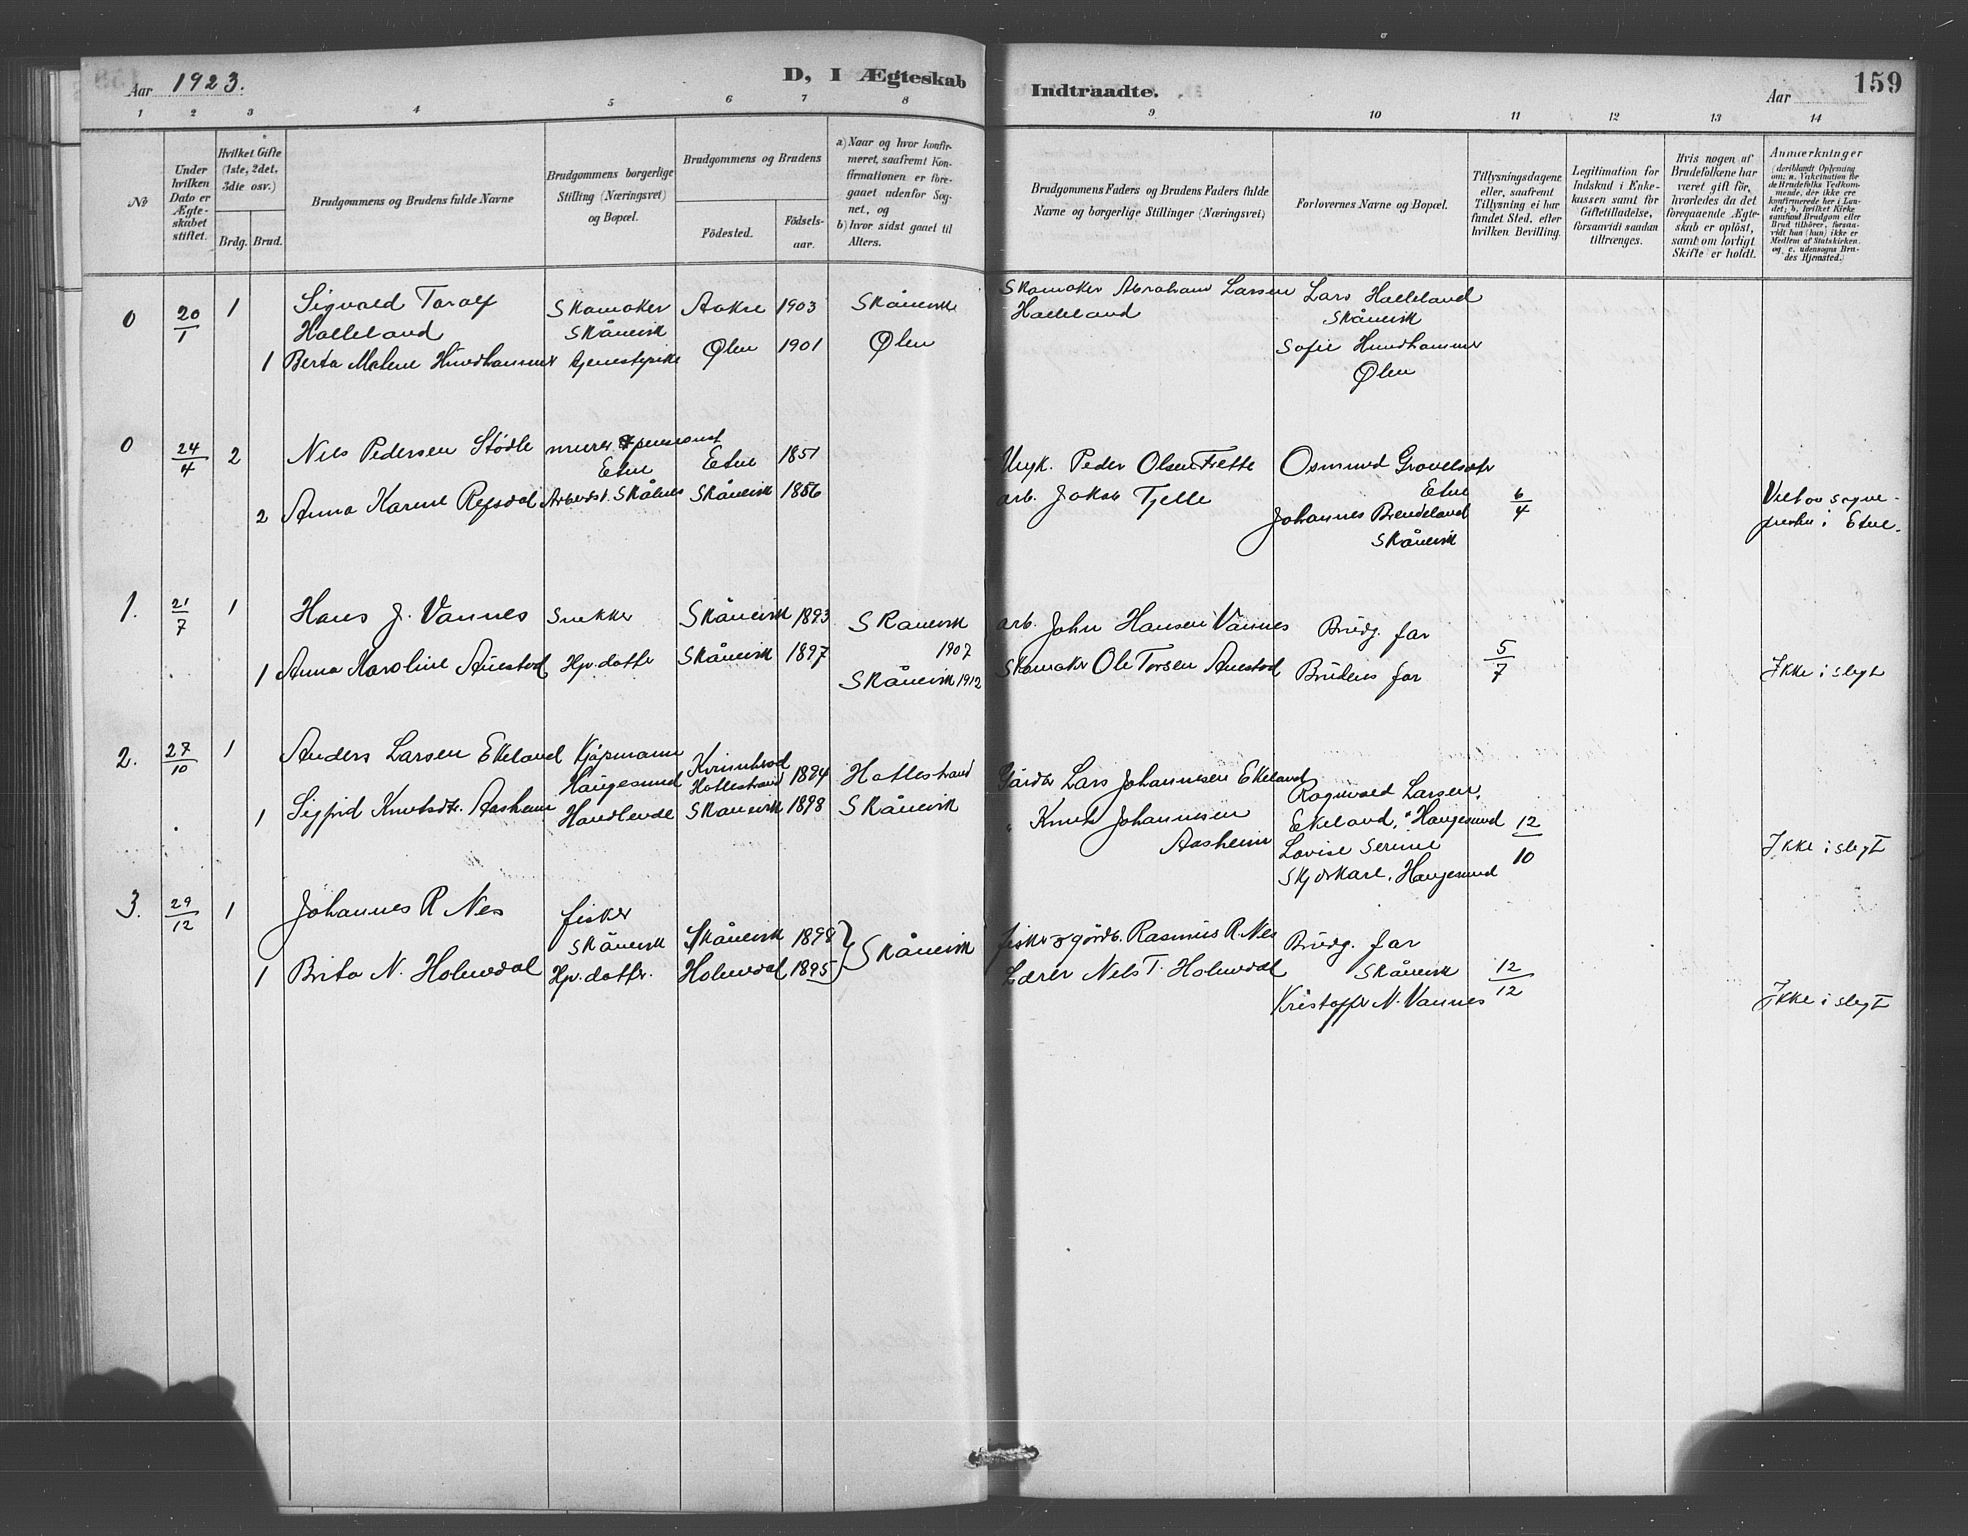 Aar 1923.
D, I Ægteskab
Indtraadte.
Aar
159
1 2 3 4 5 6 7 8 9 10 11 12 13 14
No
Under hvilken Dato er Ægteskabet stiftet.
Hvilket Gifte (1ste, 2det, 3die osv.)
Brdg. Brud.
Brudgommens og Brudens fulde Navne
Brudgommens borgerlige Stilling (Næringsvei) og Bopæl.
Brudgommens og Brudens
Fødested.
Fødselsaar.
a) Naar og hvor konfirmeret, saafremt Konfirmationen er foregaaet udenfor Sognet, og
b) hvor sidst gaaet til Alters.
Brudgommens Faders og Brudens Faders fulde Navne og borgerlige Stillinger (Næringsvei)
Forlovernes Navne og Bopæl.
Tillysningsdagene eller, saafremt Tillysning ei har fundet Sted, efter hvilken Bevilling.
Legitimation for Indskud i Enkekassen samt for Giftetilladelse, forsaavidt saadan tiltrænges.
Hvis nogen af Brudefolkene har været gift før, hvorledes da det foregaaende Ægteskab er opløst, samt om lovligt Skifte er holdt.
Anmærkninger
(deriblandt Oplysning om: a. Vakcination for de Brudefolks Vedkommende, der ikke ere konfirmerede her i Landet; b. hvilket Kirkesamfund Brudgom eller Brud tilhører, forsaavidt han (hun) ikke er Medlem af Statskirken, og c. udensogns Brudes Hjemsted.)
0 20/1 1 Sigvald Taralf Halleland Skomaker Skånevik Aakre 1903 Skånevik Skomaker Abraham Larsen Halleland Lars Halleland Skånevik
1 Berta Malene Hundhammer tjenestepike Ølen 1901 Ølen Sofie Hundhammer Ølen
0 24/4 2 Nils Pedersen Stødle murer & pensionist Etne Etne 1851 Ungk. Peder Olsen Frette Osmund Etne
2 Anna Karine Refsdal Skålnes Skånevik 1856 arb. Jakob Tjelle Johannes Brendeland Skånevik 6/4 i Etne.
1. 21/7 1 Hans J. Vannes Snekker Skånevik 1893 Skånevik 1907 arb. John Hansen Vannes Brudg. far
1 Anna Karoline Auestad Hp. datter Skånevik 1897 Skånevik 1912 Skomaker Ole Torsen Auestad Brudens far 5/7 Ikke i slegt
2. 27/10 1 Anders Larsen Ekeland Kjøpmann Haugesund Kvinnherad Hatlestrand 1894 Hatlestrand Gårdbr. Lars Johannesen Ekeland Ragnvald Larsen Ekeland, Haugesund
1 Sigfrid Knutsdtr. Aasheim Handlende Skånevik 1898 Skånevik " Knut Johannesen Aasheim Lovise Serine Haugesund 12/10 Ikke i slegt
3. 29/12 1 Johannes R Nes fisker Skånevik Skånevik 1898 Skånevik fisker & gårdb. Rasmus R. Nes Brudg. far Skånevik
1 Brita N. Holmedal Hp. datter. Holmedal 1895 Lærer Nels T. Holmedal Kristoffer N. Vannes 12/12 Ikke i slegt